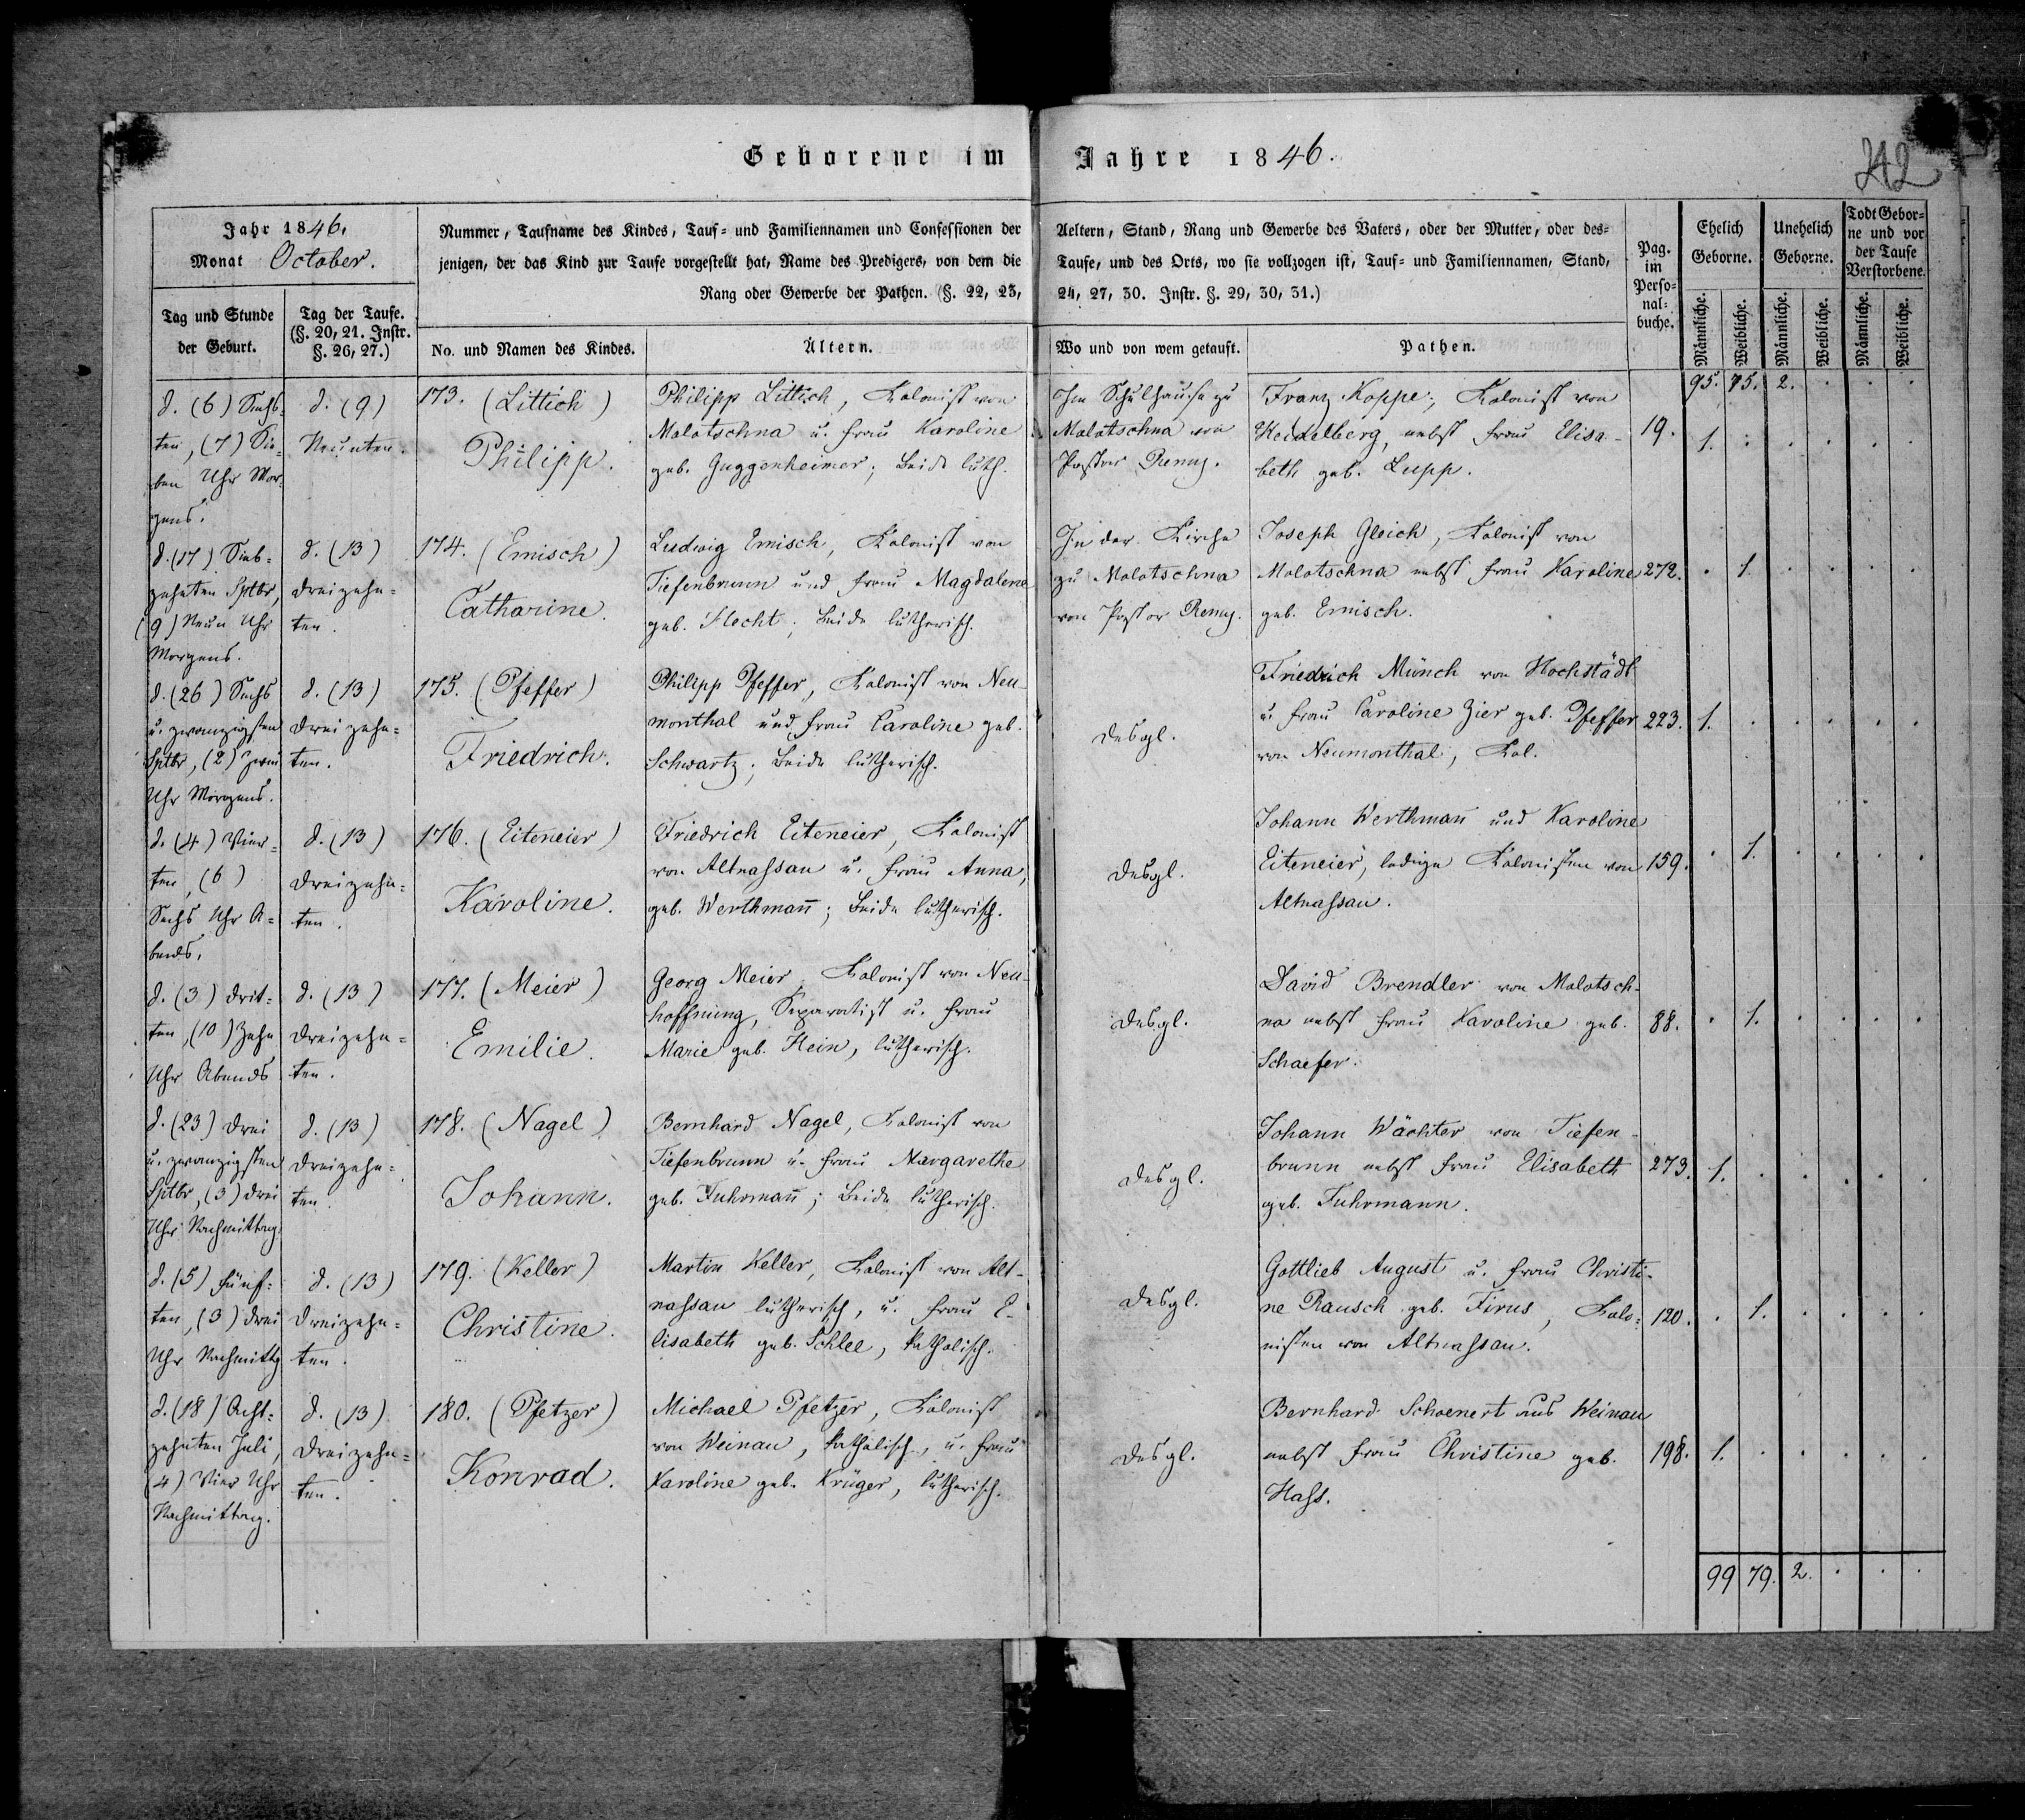 Geborene im Jahre 1846.
242
Jahr 1846.
Monat October.
Nummer, Taufname des Kindes, Tauf- und Familiennamen und Confessionen der Aeltern, Stand, Rang und Gewerbe des Vaters, oder der Mutter, oder des=
jenigen, der das Kind zur Taufe vorgestellt hat, Name des Predigers, von dem die Taufe, und des Orts, wo sie vollzogen ist, Tauf- und Familiennamen, Stand,
Rang oder Gewerbe der Pathen. (§. 22, 23, 24, 27, 30. Instr. §. 29, 30, 31.)
Tag und Stunde
der Geburt.
Tag der Taufe.
(§. 20, 21. Instr.
§. 26, 27.)
No. und Namen des Kindes.
Ältern.
Wo und von wem getauft.
Pathen.
Pag.
im
Perso=
nal=
buche.
Ehelich
Geborne.
Unehelich
Geborne.
Todt Gebor=
ne und vor
der Taufe
Verstorbene.
Männliche.
Weibliche.
Männliche.
Weibliche.
Männliche.
Weibliche.
95. 75. 2. . . .
d. (6) Sechs=
ten, (7) Sie=
ben Uhr Mor=
gens.
d. (9)
Neunten.
173. (Littich)
Philipp.
Philipp Littich, Kolonist von
Molotschna u. Frau Karoline
geb. Guggenheimer; Beide luth.
Im Schulhause zu
Molotschna von
Pastor Remy.
Franz Koppe, Kolonist von
Heidelberg, nebst Frau Elisa-
beth geb. Lupp.
19.
1. . . . . .
d. (17) Sieb=
zehnten Sptbr,
(9) Neun Uhr
Morgens.
d. (13)
Dreizehn=
ten.
174. (Emisch)
Catharine.
Ludwig Emisch, Kolonist von
Tiefenbrunn und Frau Magdalena
geb. Hecht; Beide lutherisch.
In der Kirche
zu Molotschna
von Pastor Remy.
Joseph Gleich, Kolonist von
Molotschna nebst Frau Karoline
geb. Emisch.
272.
. 1. . . . .
d. (26) Sechs
u. zwanzigsten
Sptbr, (2) Zwei
Uhr Morgens.
d. (13)
Dreizehn=
ten.
175. (Pfeffer)
Friedrich.
Philipp Pfeffer, Kolonist von Neu-
monthal und Frau Caroline geb.
Schwartz; Beide lutherisch.
Desgl.
Friedrich Münch von Hochstädt
u. Frau Caroline Zier geb. Pfeffer
von Neumonthal, Kol.
223.
1. . . . . .
d. (4) Vier=
ten, (6)
Sechs Uhr A=
bends.
d. (13)
Dreizehn=
ten.
176. (Eiteneier)
Karoline.
Friedrich Eiteneier, Kolonist
von Altnassau u. Frau Anna,
geb. Werthmañ; Beide lutherisch.
Desgl.
Johann Werthmañ und Karoline
Eiteneier, ledige Kolonisten von
Altnassau.
159.
. 1. . . . .
d. (3) Drit=
ten, (10) Zehn
Uhr Abends
d. (13)
Dreizehn=
ten.
177. (Meier)
Emilie.
Georg Meier, Kolonist von Neu-
hoffnung, Separatist u. Frau
Marie geb. Hein, lutherisch.
Desgl.
David Brendler von Molotsch-
na nebst Frau Karoline geb.
Schaefer.
88.
. 1. . . . .
d. (23) Drei
u. zwanzigsten
Sptbr, (3) Drei
Uhr Nachmittag
d. (13)
Dreizehn=
ten.
178. (Nagel)
Johann.
Bernhard Nagel, Kolonist von
Tiefenbrunn u. Frau Margarethe
geb. Fuhrmañ; Beide lutherisch.
Desgl.
Johann Wächter von Tiefen-
brunn nebst Frau Elisabeth
geb. Fuhrmann.
273.
1. . . . . .
d. (5) Fünf=
ten, (3) Drei
Uhr Nachmittg
d. (13)
Dreizehn=
ten.
179. (Keller)
Christine.
Martin Keller, Kolonist von Alt-
nassau lutherisch, u. Frau E-
lisabeth geb. Schlee, katholisch.
Desgl.
Gottlieb August u. Frau Christi-
ne Rausch geb. Firus, Kolo=
nisten von Altnassau.
120.
. 1. . . . .
d. (18) Acht=
zehnten Juli,
(4) Vier Uhr
Nachmittag.
d. (13)
Dreizehn=
ten.
180. (Pfetzer)
Konrad.
Michael Pfetzer, Kolonist
von Weinau, katholisch, u. Frau
Karoline geb. Krüger, lutherisch.
Desgl.
Bernhard Schoenert aus Weinau
nebst Frau Christine geb.
Hass.
198.
1. . . . . .
99 79. 2. . . .